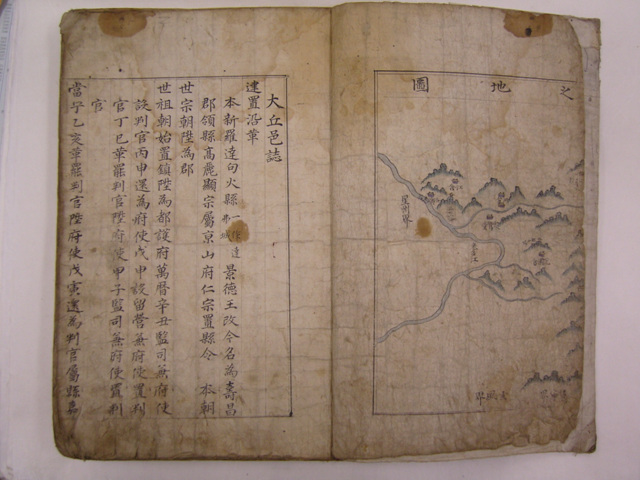 之地圖
星州界
大丘邑誌
建置沿革
本新羅達句火縣一作達弗城景德王改今名為壽昌
郡領縣高麗顯宗屬京山府仁宗置縣令 本朝
世宗朝陞為郡
世祖朝始置鎮陞為都護府萬曆辛丑監司兼府使
設判官丙申還為府使戊申設留營兼府使置判
官丁巳革罷判官陞府使甲子監司兼府使置判
官
當宁乙亥革罷判官陞府使戊寅還為判官屬縣